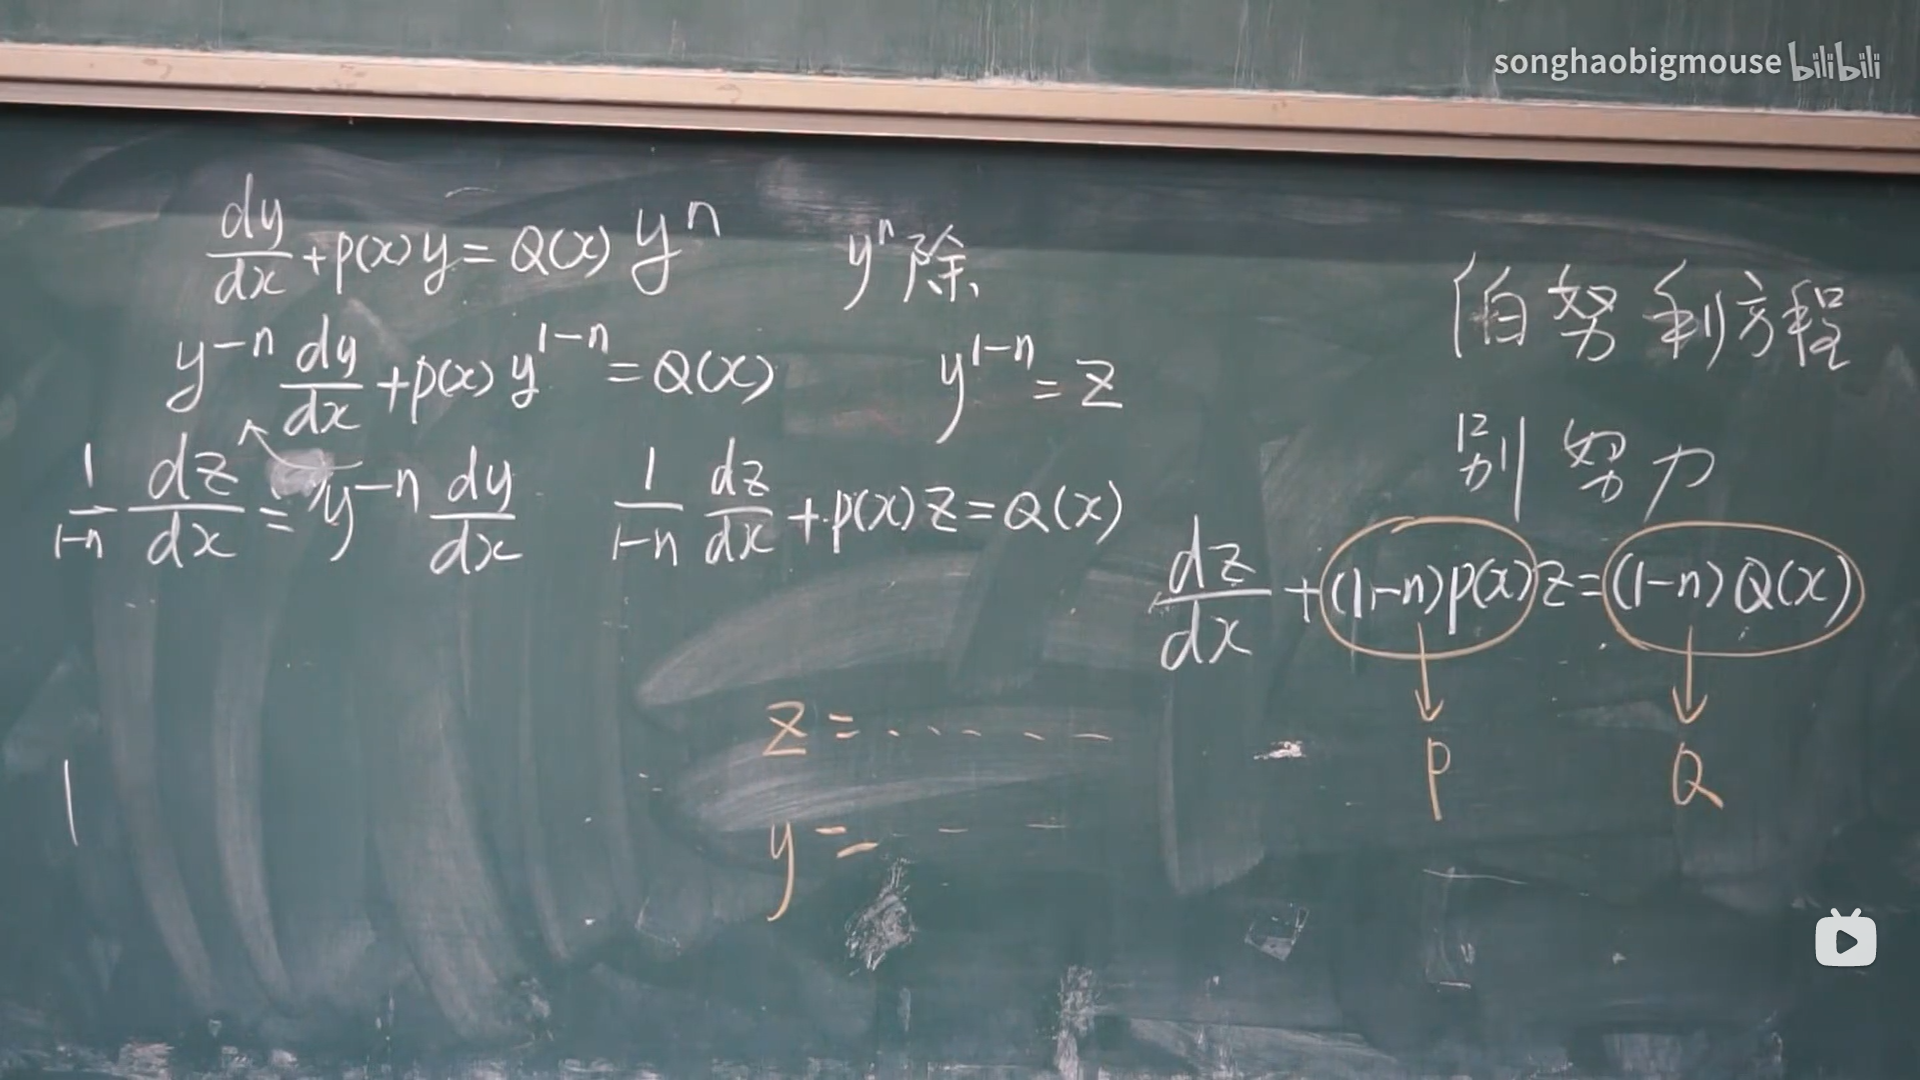 songhaobigmouse bilibili
dy/dx + p(x) y = Q(x) yⁿ
yⁿ除
伯努利方程
y⁻ⁿ dy/dx + p(x) y¹⁻ⁿ = Q(x)
y¹⁻ⁿ = z
别努力
1/1-n dz/dx = y⁻ⁿ dy/dx
1/1-n dz/dx + p(x) z = Q(x)
dz/dx + (1-n)p(x) z = (1-n) Q(x)
z = ......
P
Q
y = - - -